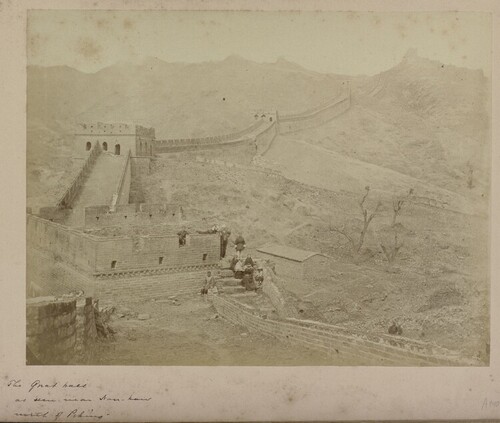 The Great Wall
as seen near Nan-kow
north of Peking